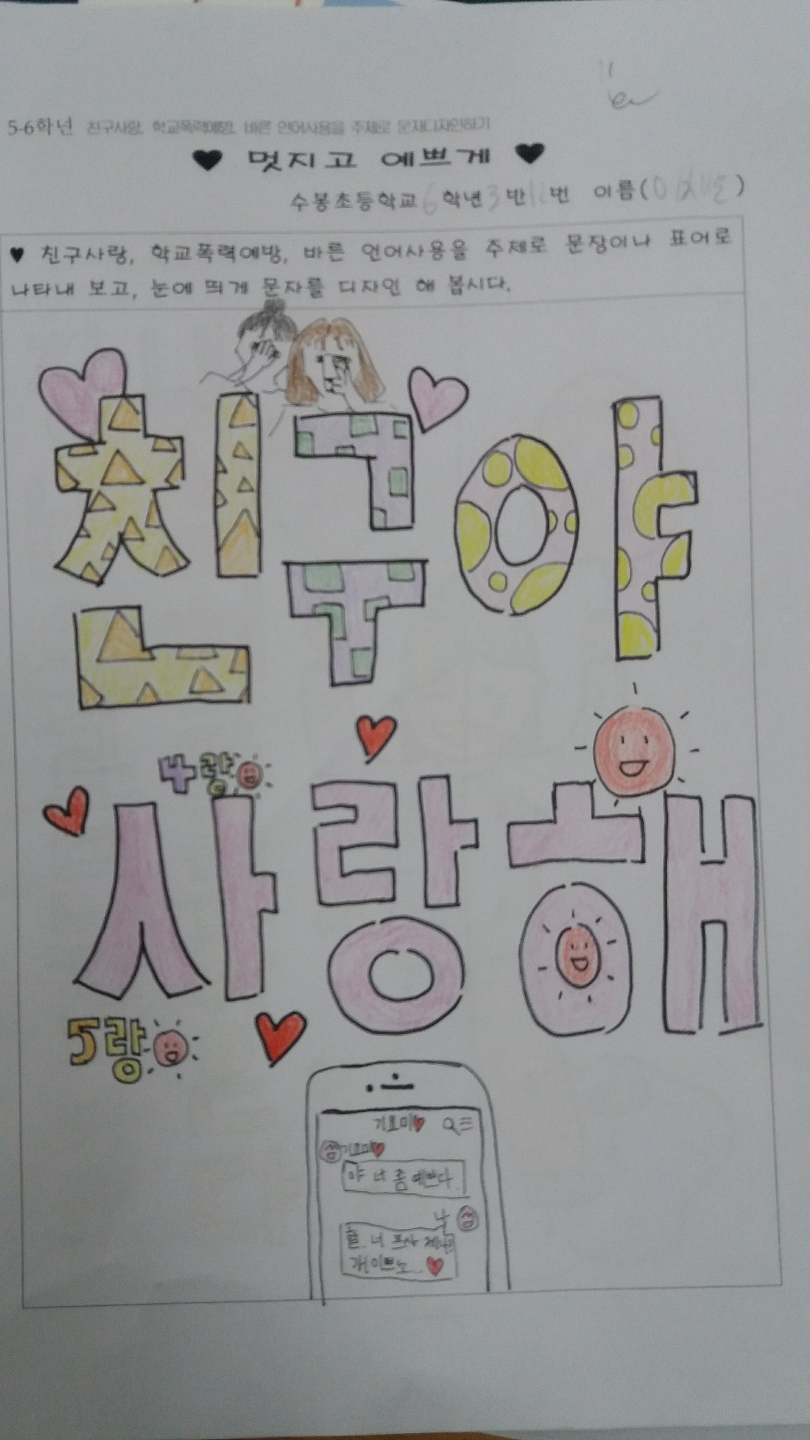 5-6학년 친구사랑, 학교폭력예방, 바른 언어사용을 주제로 문자디자인하기
♥ 멋지고 예쁘게 ♥
수봉초등학교 6학년 3반 12번 이름( )
♥ 친구사랑, 학교폭력예방, 바른 언어사용을 주제로 문장이나 표어로
나타내 보고, 눈에 띄게 문자를 디자인 해 봅시다.
친구야
4랑
사랑해
5랑
기요미♥
기요미♥
야 너 좀 예쁘다.
나
헐. 너 프사
개이쁘노... ♥